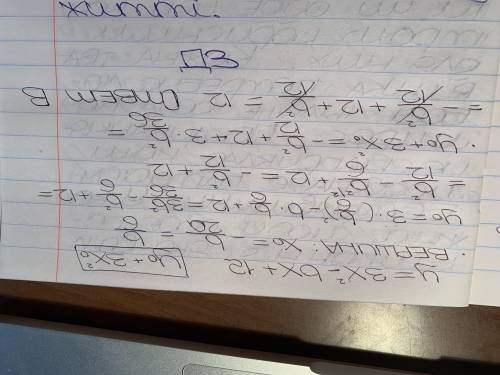 y = 3x² - bx + 12   y₀ + 3x₀²
• ВЕРШИНА: x₀ = -b/2a = b/6
y₀ = 3·(b/6)² - b·b/6 + 12 = 3b²/36 - b²/6 + 12 =
= b²/12 - b²/6 + 12 = -b²/12 + 12
• y₀ + 3x₀² = -b²/12 + 12 + 3·b²/36 =
= -b²/12 + 12 + b²/12 = 12   Ответ В
ДЗ
житті.